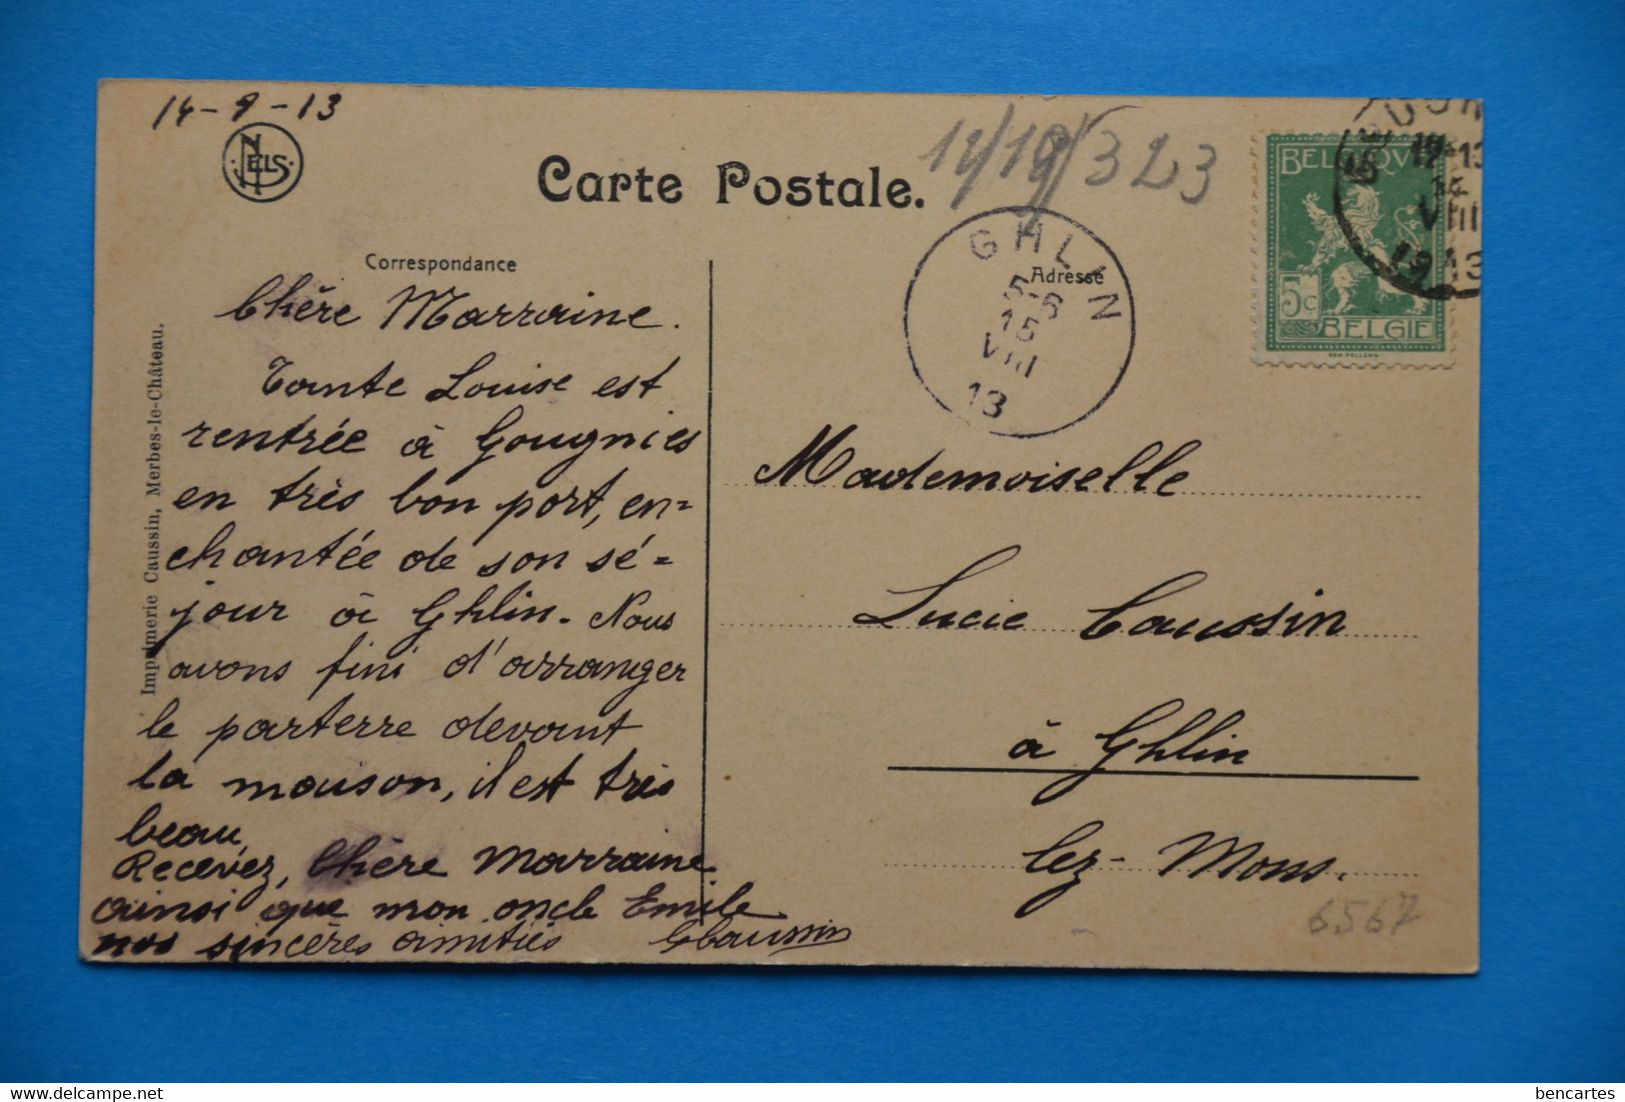 14-8-13
NELS
Carte Postale.
11/19/323
BELGIQUE
5c
BELGIE
12-13
14
VIII
1913
GHLIN
5-6
15
VIII
13
Correspondance
Adresse
Chère Marraine.
Tante Louise est
rentrée à Gougnies
en très bon port, en=
chantée de son sé=
jour à Ghlin. Nous
avons fini d'arranger
le parterre devant
la maison, il est très
beau.
Recevez, Chère Marraine
ainsi que mon oncle Emile
nos sincères amitiés GCaussin
Imprimerie Caussin, Merbes-le-Château.
Mademoiselle
Lucie Caussin
à Ghlin
lez-Mons.
6567
bencartes